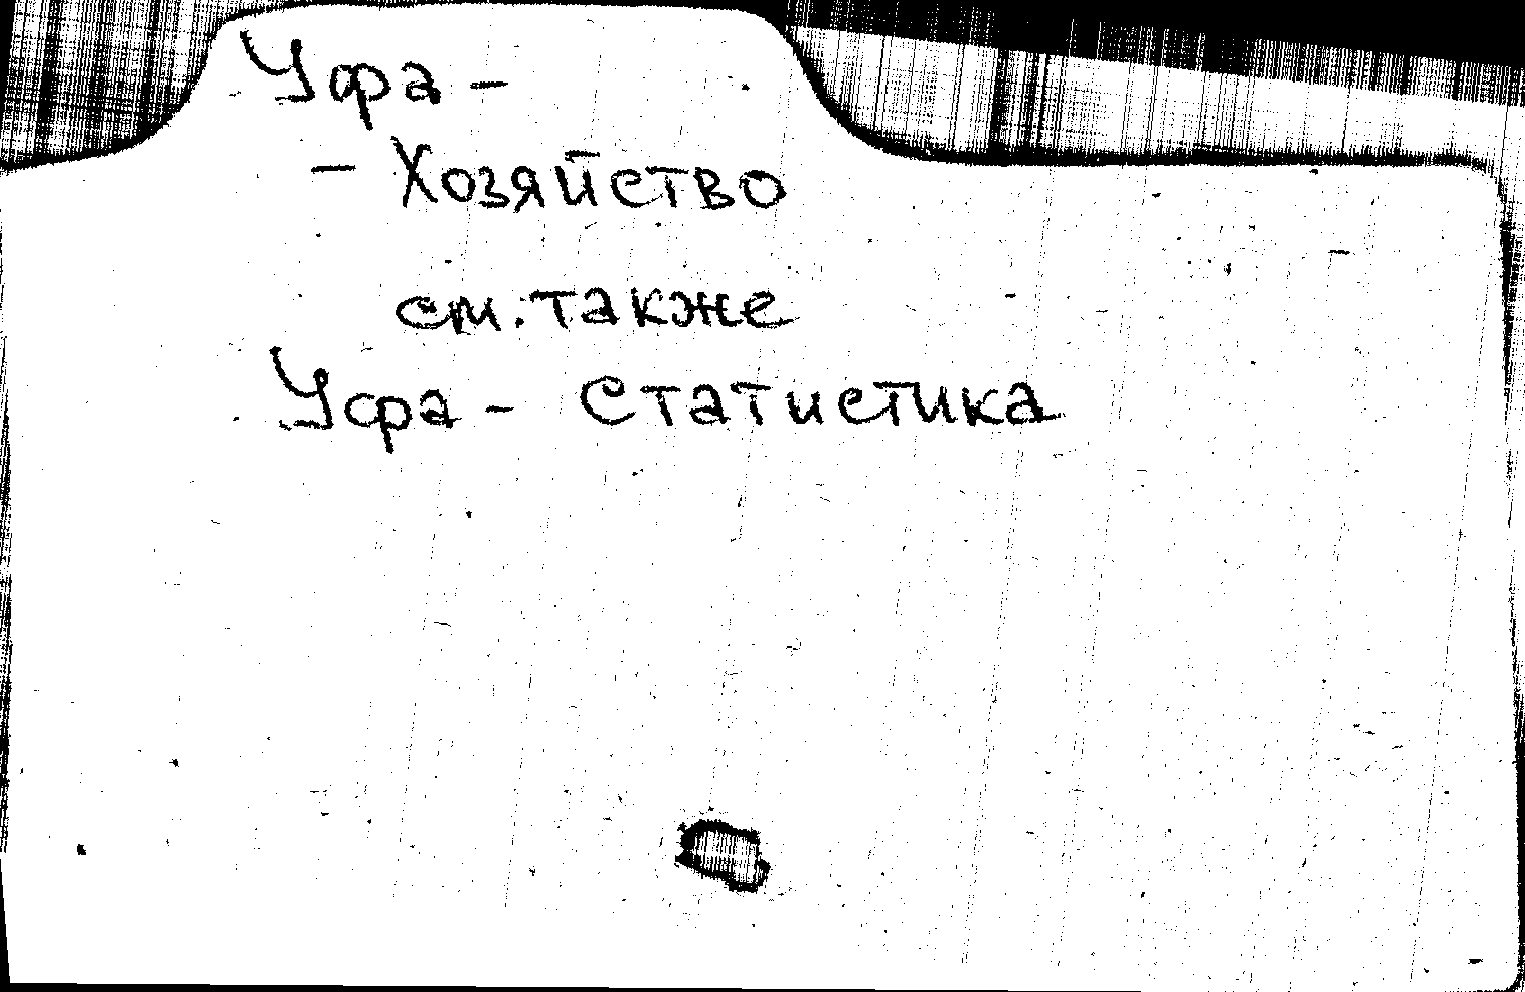 Уфа -
- Хозяйство
см. также
Уфа - Статистика